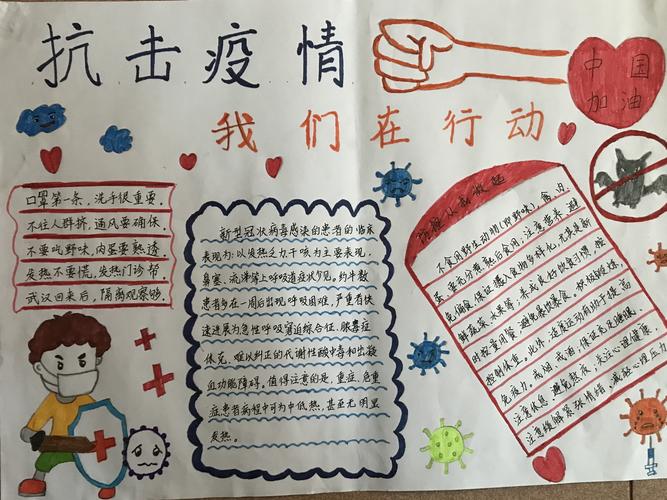 抗击疫情
中国
加油
我们在行动
口罩第一条，洗手很重要。
不往人群挤，通风要确保。
不要吃野味，肉蛋要熟透。
发热不要慌，发热门诊帮。
武汉回来后，隔离观察够。
新型冠状病毒感染的患者的临床
表现为：以发热乏力干咳为主要表现。
鼻塞、流涕等上呼吸道症状少见，约半数
患者多在一周后出现呼吸困难，严重者快
速进展为急性呼吸窘迫综合征、脓毒症
休克、难以纠正的代谢性酸中毒和出凝
血功能障碍。值得注意的是，重症、危重
症患者病程中可为中低热，甚至无明显
发热。
防控从我做起
不食用野生动物(即野味)，禽、肉、
蛋要充分煮熟后食用；注意营养，避
免偏食，保证摄入食物多样化，尤其是新
鲜蔬菜、水果等，养成良好饮食习惯，按
时按量用餐，避免暴饮暴食。积极锻炼，
控制体重。此外，适度运动有助于提高
免疫力，戒烟，戒酒，保证充足睡眠，
注意休息，避免熬夜；关注心理健康，
注意缓解紧张情绪，减轻心理压力